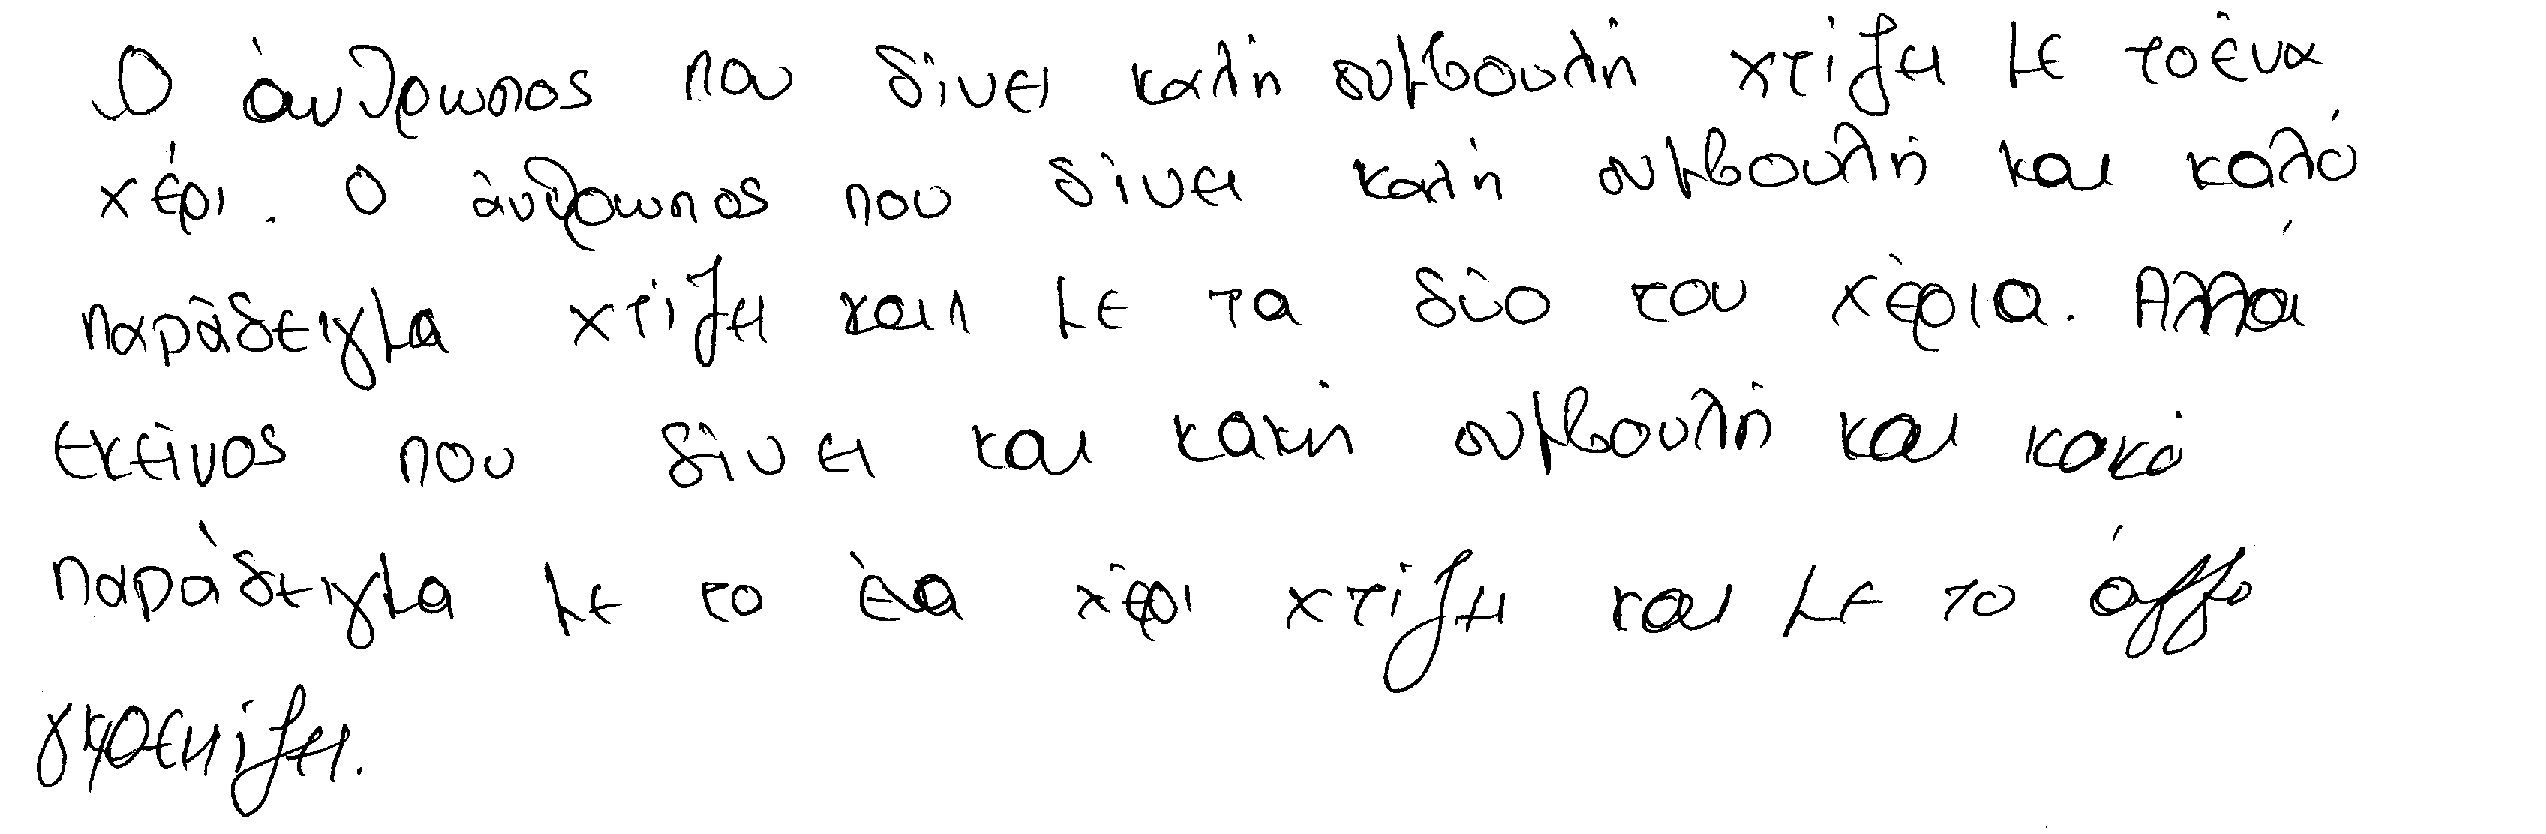 Ο άνθρωπος που δίνει καλή συμβουλή χτίζει με το ένα
χέρι. Ο άνθρωπος που δίνει καλή συμβουλή και καλό
παράδειγμα χτίζει και με τα δύο του χέρια. Αλλά
εκείνος που δίνει και κακή συμβουλή και κακό
παράδειγμα με το ένα χέρι χτίζει και με το άλλο
γκρεμίζει.